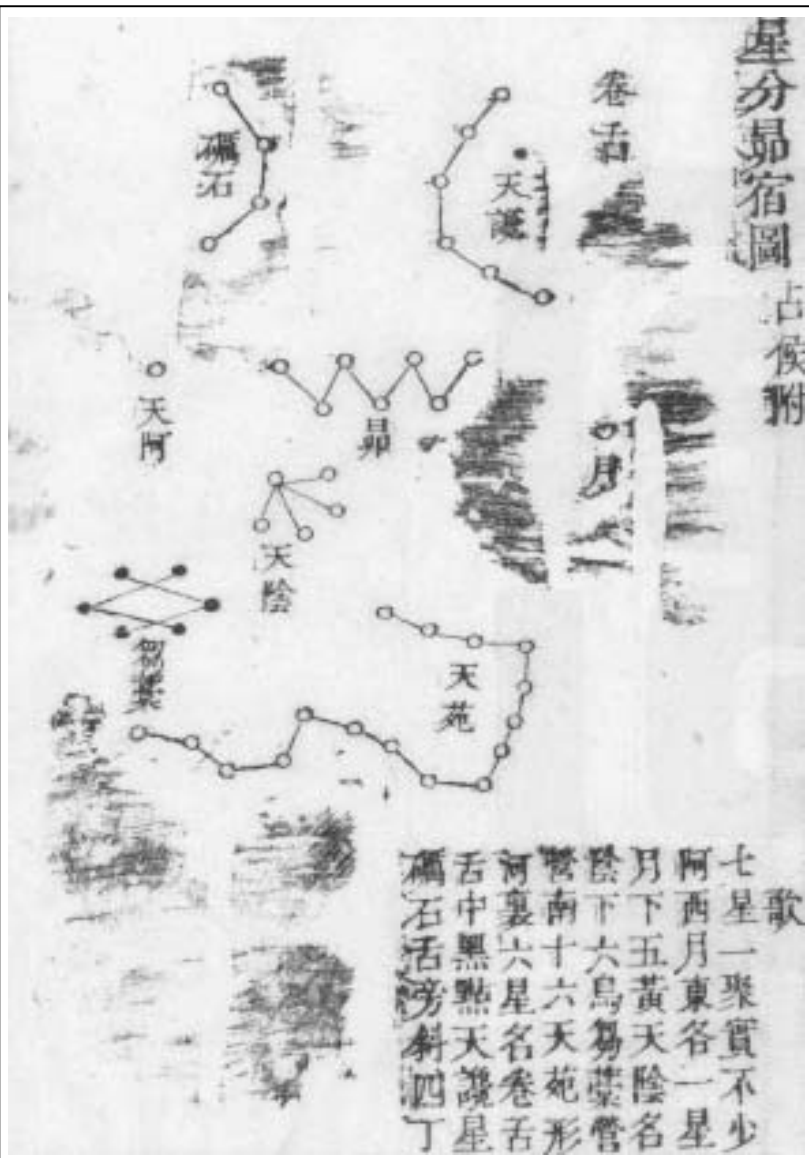 星分昴宿圖 占候附
卷舌
天讒
礪石
月
昴
天阿
天陰
天苑
芻藁
歌
七星一聚實不少
阿西月東各一星
月下五黃天陰名
陰下六烏芻藁營
營南十六天苑形
河裏六星名卷舌
舌中黑點天讒星
礪石舌旁斜四丁